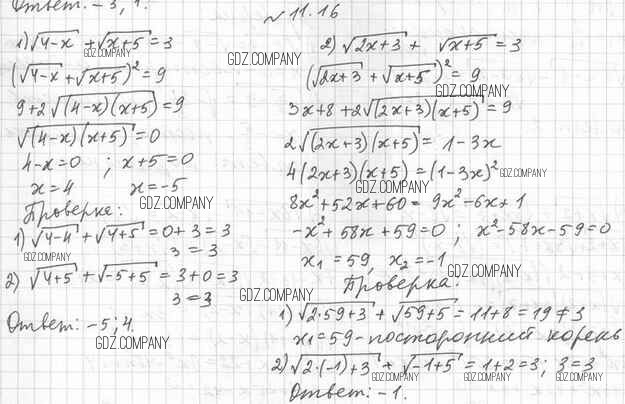 Ответ: -3; 1.
№ 11.16
1) √(4-x) + √(x+5) = 3
(√(4-x) + √(x+5))² = 9
9 + 2√((4-x)(x+5)) = 9
√((4-x)(x+5)) = 0
4-x=0 ; x+5=0
x=4 x=-5
Проверка:
1) √(4-4) + √(4+5) = 0+3 = 3
3 = 3
2) √(4+5) + √(-5+5) = 3+0=3
3 = 3
Ответ: -5; 4.
2) √(2x+3) + √(x+5) = 3
(√(2x+3) + √(x+5))² = 9
3x+8+2√((2x+3)(x+5)) = 9
2√((2x+3)(x+5)) = 1-3x
4(2x+3)(x+5) = (1-3x)²
8x²+52x+60 = 9x²-6x+1
-x²+58x+59=0 ; x²-58x-59=0
x₁ = 59, x₂ = -1
Проверка:
1) √(2·59+3) + √(59+5) = 11+8 = 19 ≠ 3
x₁=59 - посторонний корень
2) √(2·(-1)+3) + √(-1+5) = 1+2=3; 3=3
Ответ: -1.
GDZ.COMPANY
GDZ.COMPANY
GDZ.COMPANY
GDZ.COMPANY
GDZ.COMPANY
GDZ.COMPANY
GDZ.COMPANY
GDZ.COMPANY
GDZ.COMPANY
GDZ.COMPANY
GDZ.COMPANY
GDZ.COMPANY
GDZ.COMPANY
GDZ.COMPANY